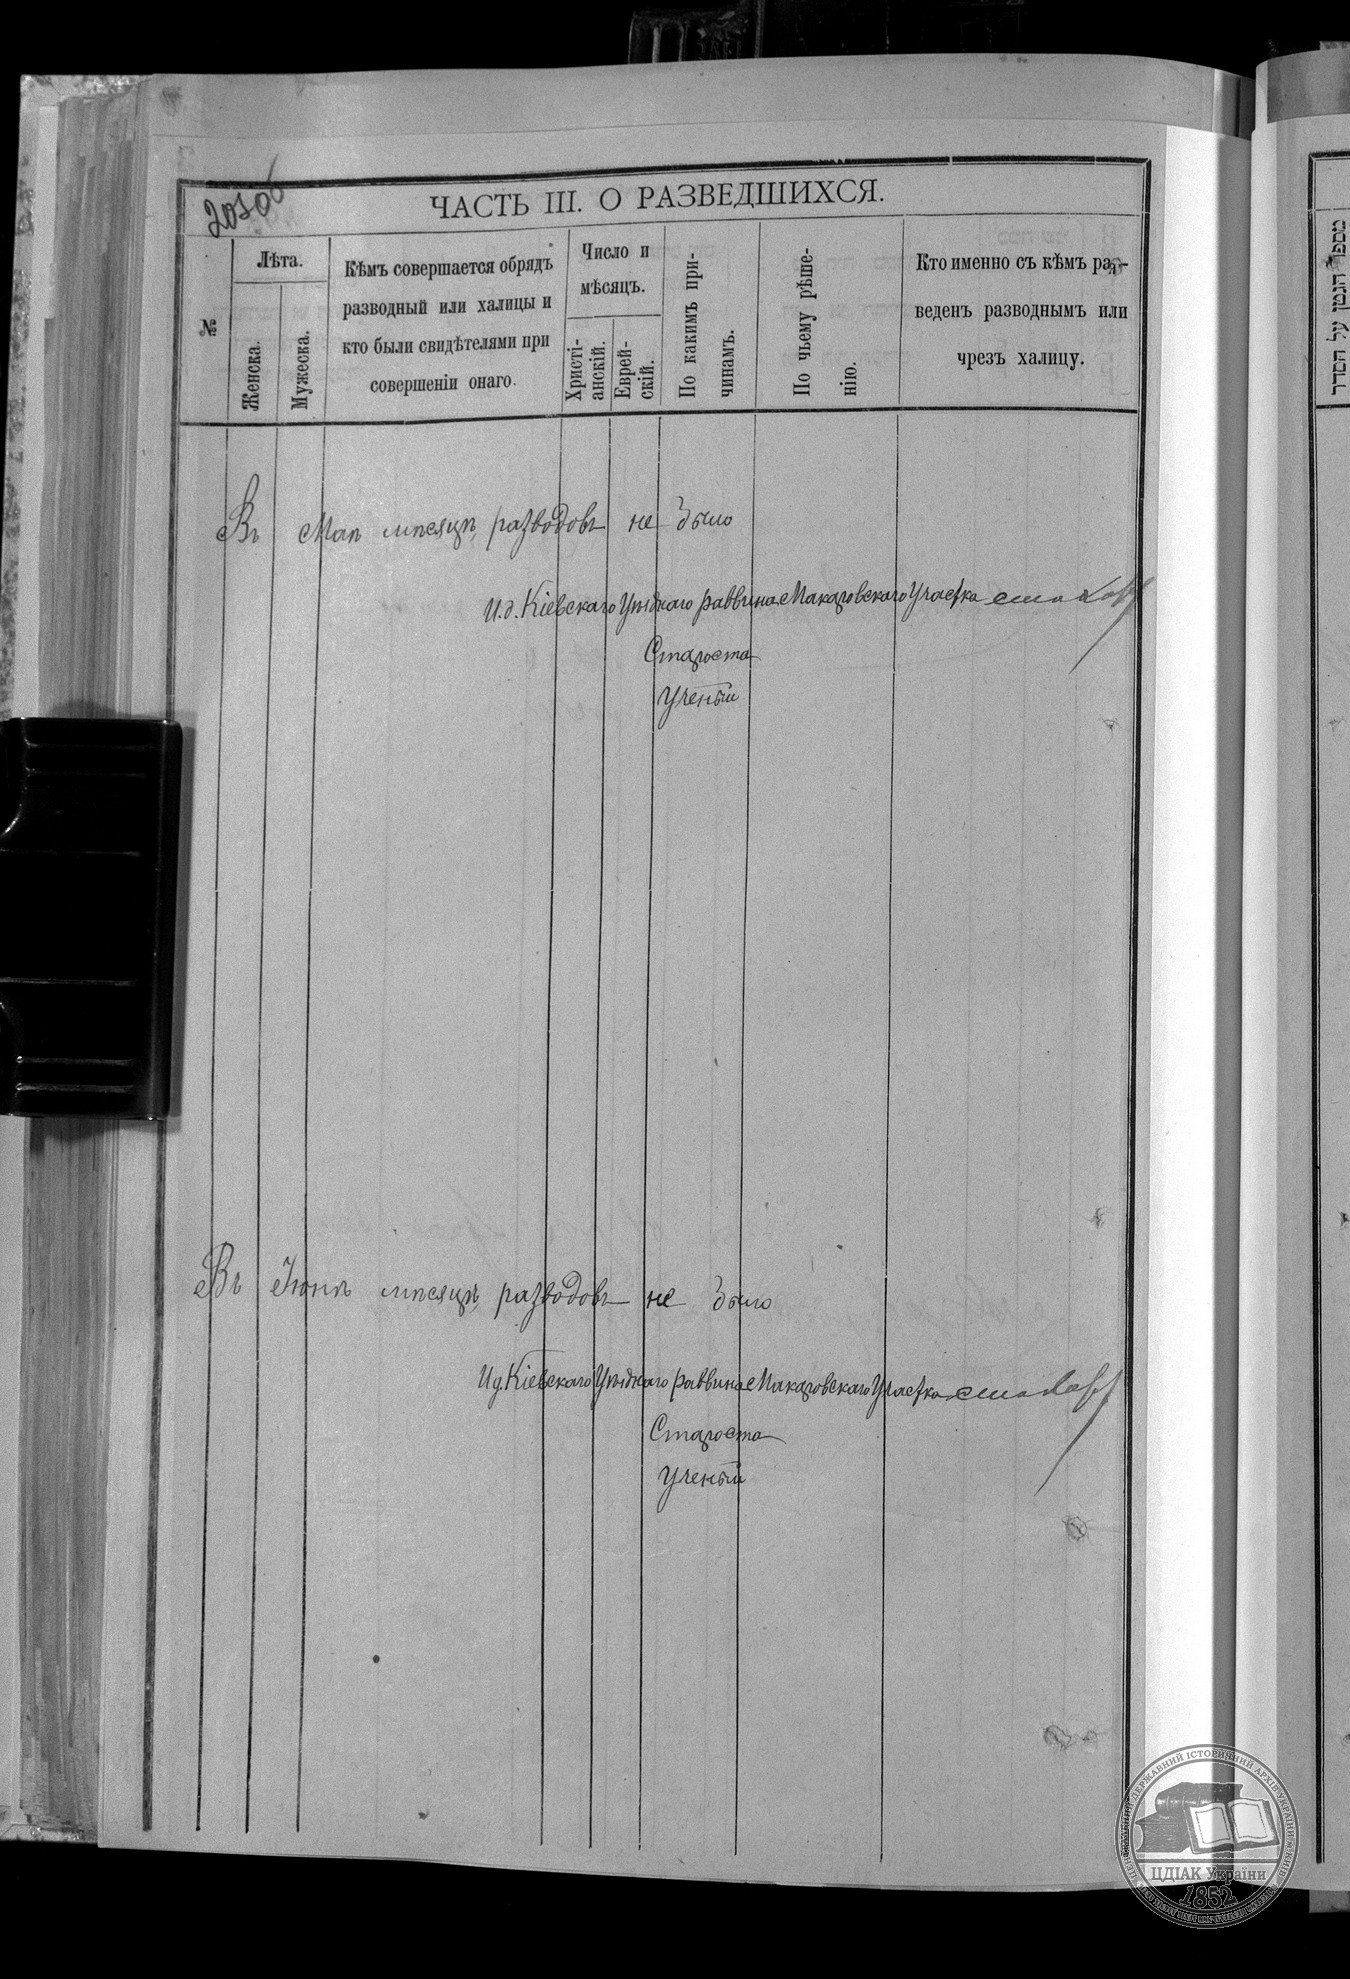 ЧАСТЬ III. О РАЗВЕДШИХСЯ.
№
Лѣта.
Женска.
Мужеска.
Кѣмъ совершается обрядъ
разводный или халицы и
кто были свидѣтелями при
совершеніи онаго.
Число и
мѣсяцъ.
Христі-
анскій.
Еврей-
скій.
По какимъ при-
чинамъ.
По чьему рѣше-
нію.
Кто именно съ кѣмъ раз-
веденъ разводнымъ или
чрезъ халицу.
Въ Маѣ мѣсяцѣ разводовъ не было
И.д. Кіевскаго Уѣзднаго раввина Макаровскаго Участка
Староста
Ученый
Въ Іюнѣ мѣсяцѣ разводовъ не было
И.д. Кіевскаго Уѣзднаго раввина Макаровскаго Участка
Староста
Ученый
מספר הגטין על הסדר
ЦЕНТРАЛЬНИЙ ДЕРЖАВНИЙ ІСТОРИЧНИЙ АРХІВ УКРАЇНИ М.КИЇВ
ЦДІАК України
1852